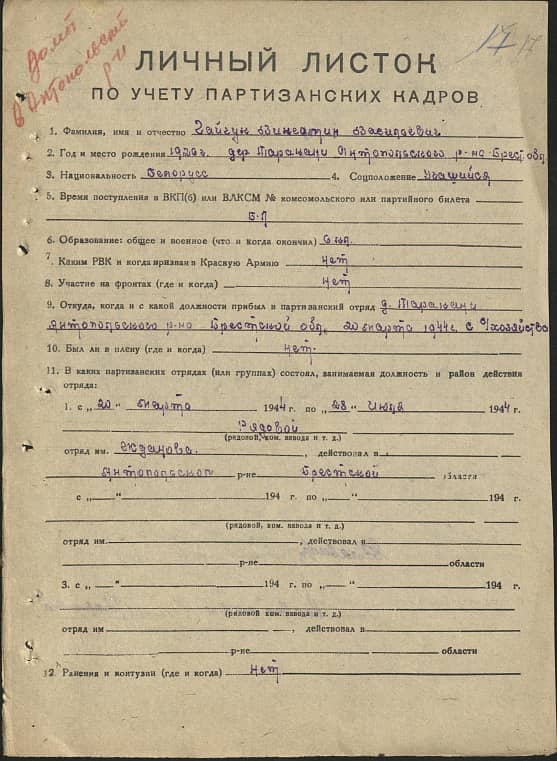 домой
в Антопольский
р-н
17
17
ЛИЧНЫЙ ЛИСТОК
ПО УЧЕТУ ПАРТИЗАНСКИХ КАДРОВ
1. Фамилия, имя и отчество Васильевич
2. Год и место рождения дер. Таракани Антопольского р-на Брест. обл.
3. Национальность Белорусс 4. Соцположение Учащийся
5. Время поступления в ВКП(б) или ВЛКСМ № комсомольского или партийного билета
Б-П
6. Образование: общее и военное (что и когда окончил) 6 кл.
7. Каким РВК и когда призван в Красную Армию нет
8. Участие на фронтах (где и когда) нет
9. Откуда, когда и с какой должности прибыл в партизанский отряд д. Таракани
Антопольского р-на Брестской обл. 20 марта 1944г. с с/хозяйства
10. Был ли в плену (где и когда) нет.
11. В каких партизанских отрядах (или группах) состоял, занимаемая должность и район действия
отряда:
1. с „20“ марта 1944 г. по „28“ июля 1944 г.
Рядовой
(рядовой, ком. взвода и т. д.)
отряд им. Жданова, действовал в
Антопольском р-не Брестской области
с „—“ 194 г. по „—“ 194 г.
(рядовой, ком. взвода и т. д.)
отряд им. , действовал в
р-не области
3. с „—“ 194 г. по „—“ 194 г.
(рядовой ком. взвода и т. д.)
отряд им , действовал в
р-не области
12. Ранения и контузии (где и когда) нет